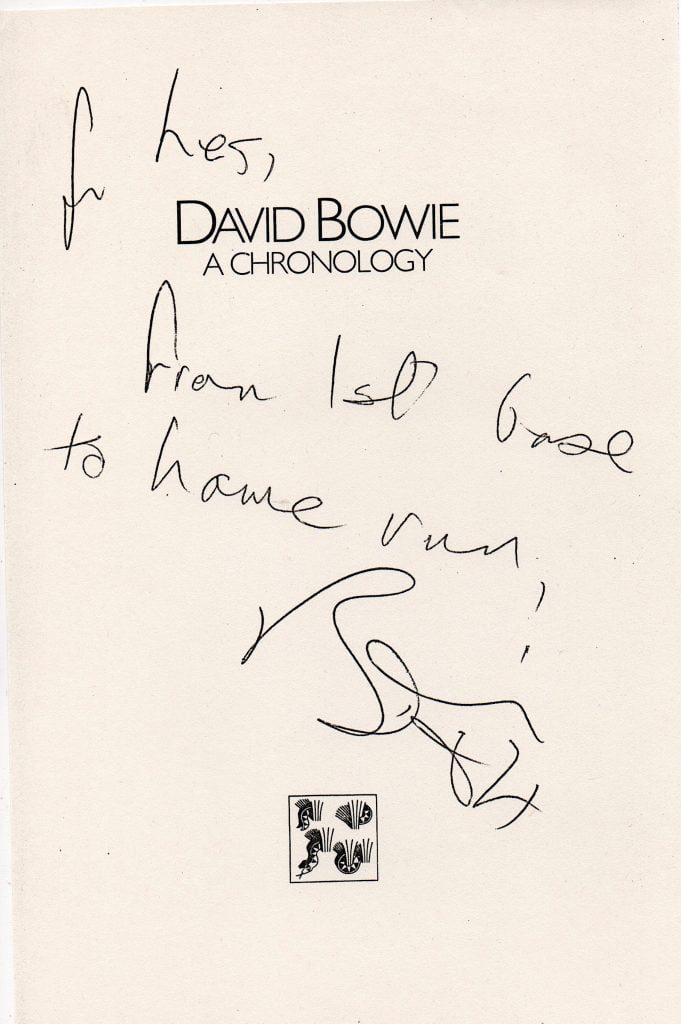 for
DAVID BOWIE
A CHRONOLOGY
from 1st base
to home run!
Bowie 84